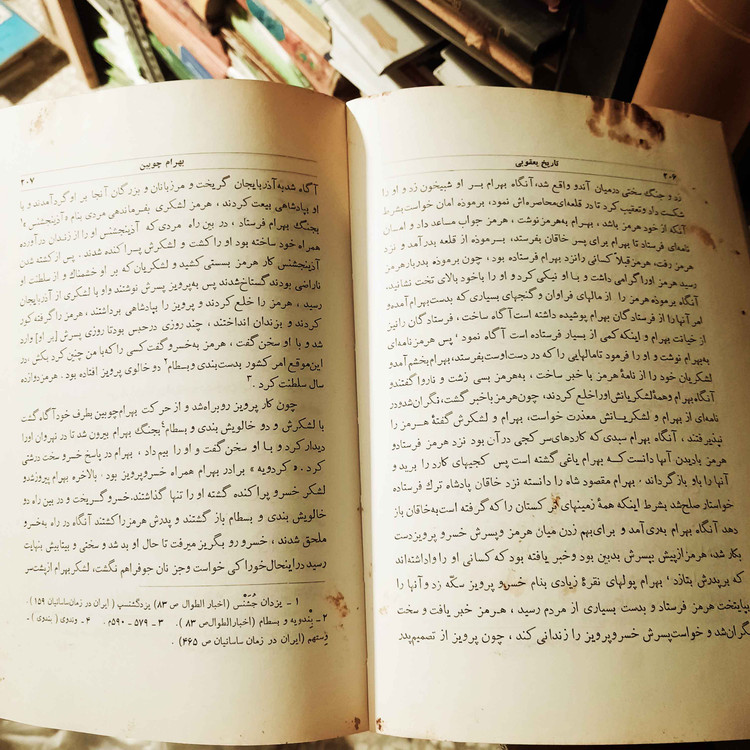 ۲۰۶
تاریخ یعقوبی
زد و جنگ سختی درمیان آندو واقع شد، آنگاه بهرام بـر او شبیخون زد و او را
شکست داد و تعقیب کرد تا در قلعه‌ای محاصره‌اش نمود، برموده امان خواست بشرط
آنکه از خود هرمز باشد، بهرام به هرمز نوشت، هرمز جواب مساعد داد و امـان
نامه‌ای فرستاد تا بهرام برای پسر خاقان بفرستد، بـرموذه از قلعه بدر آمد و نزد
هرمز رفت، هرمز قبلاً کسانی را نزد بهرام فرستاده بود، چون برموذه بدربار هرمز
رسید هرمز او را گرامی داشت و بـا او نیکی کرد و او را باخود بالای تخت نشانید،
آنگاه برموذه هرمز را از مالهای فراوان و گنجهای بسیاری که بدست بهرام آمد و
امر آنها را از فرستادگان بهرام پوشیده داشته است آگاه ساخت، فرستادگان را نیز
از خیانت بهرام و اینکه کمی از بسیار فرستاده است آگاه نمود، پس هرمز نامه‌ای
به بهرام نوشت و او را فرمود تا مالهایی را که در دست اوست بفرستد، بهرام بخشم آمد و
لشکریان خود را از نامهٔ هرمز با خبر ساخت، به هرمز بسی زشت و ناروا گفتند و
آنگاه بهرام و همهٔ لشکریانش او را خلع کردند، چون هرمز با خبر گشت، نگران شد و در
نامه‌ای از بهرام و لشکریـانش معذرت خواست، بهرام و لشکرش گفتهٔ هـرمز را
نپذیرفتند، آنگاه بهرام سبدی که کاردهای سر کجی در آن بود نزد هرمز فرستاد و
هرمز بادیدن آنها دانست کـه بهرام یاغی گشته است پس کجیهای کارد را برید و
آنها را باو بازگرداند. بهرام مقصود شاه را دانسته نزد خاقان پادشاه ترك فرستاده
خواستار صلح شد بشرط اینکه همهٔ زمینهای تر کستان را که گرفته است به خاقان باز
دهد آنگاه بهرام به ری آمد و برای بهم زدن میان هرمز و پسرش خسرو پرویز دست
بکار شد، هرمز از پیش بپسرش بدبین بود و خبر یافته بود که کسانی او را واداشته‌اند
که بر پدرش بتازد، بهرام پولهای نقرهٔ زیادی بنام خسرو پرویز سکّه زد و آنها را
بپایتخت هرمز فرستاد و بدست بسیاری از مردم رسید، هـرمز خبر یافت و سخت
نگران شد و خواست پسرش خسرو پرویز را زندانی کند، چون پرویز از تصمیم پدر
بهرام چوبین
۲۰۷
آگاه شد به آذربایجان گریخت و مرزبانان و بزرگان آنجا بر او گرد آمدند و با
او بپادشاهی بیعت کردند، هرمز لشکری بفرماندهی مردی بنام «آذینجشنس»۱
بجنگ بهرام فرستاد، در بین راه مردی که آذینجشنس او را از زندان در آورده
همراه خود ساخته بود او را کشت و لشکرش پراکنده شدند. پس از کشته شدن
آذینجشنس کار هرمز بسستی کشید و لشکریان که بر او خشمناك و از سلطنت او
ناراضی بودند گستاخ شدند پس به پرویز پرسش نوشتند و او با لشکری از آذربایجان
رسید، هرمز را خلع کردند و پرویز را بپادشاهی برداشتند، هرمز را گرفته کور
کردند و بزندان انداختند، چند روزی در حبس بود تا روزی پسرش [بر او] وارد
شد و با او سخن گفت، هرمز به خسرو گفت کسی را که با من چنین کرد بکش، در
این موقع امر کشور بدست بندی و بسطام۲ دو خالوی پرویز افتاده بود. هرمز دوازده
سال سلطنت کرد.۳
چون کار پرویز رو براه شد و از حرکت بهرام چوبین بطرف خود آگاه گشت
با لشکرش و دو خالویش بندی و بسطام۴ بجنگ بهرام بیرون شد تا در نهروان او را
دیدار کرد و بـا او سخن گفت و او را بیم داد، بهرام در پاسخ خسرو سخت درشتی
کرد.. «کردویه» برادر بهرام همراه خسرو پرویز بود. بالاخره بهرام پیروز شد و
لشکر خسرو پراکنده گشته او را تنها گذاشتند. خسرو گریخت و در بین راه دو
خالویش بندی و بسطام باز گشتند و پدرش هرمز را کشتند آنگاه در راه به خسرو
ملحق شدند، خسرو رو بگریز میرفت تا حال او بد شد و سختی و بیتابیش بنهایت
رسید در اینحال خوراکی خواست و جز نان جو فراهم نگشت، لشکر بهرام از پشت سر
۱ - یزدان جُشنَس (اخبار الطوال ص ۸۳) یزدگشنسب (ایران در زمان ساسانیان ۱۵۹).
۲ - بِندویه و بسطام (اخبار الطوال ص ۸۳). ۳ - ۵۷۹ - ۵۹۰م. ۴ - وندوی (بندوی) -
وِستهم (ایران در زمان ساسانیان ص ۴۶۵).